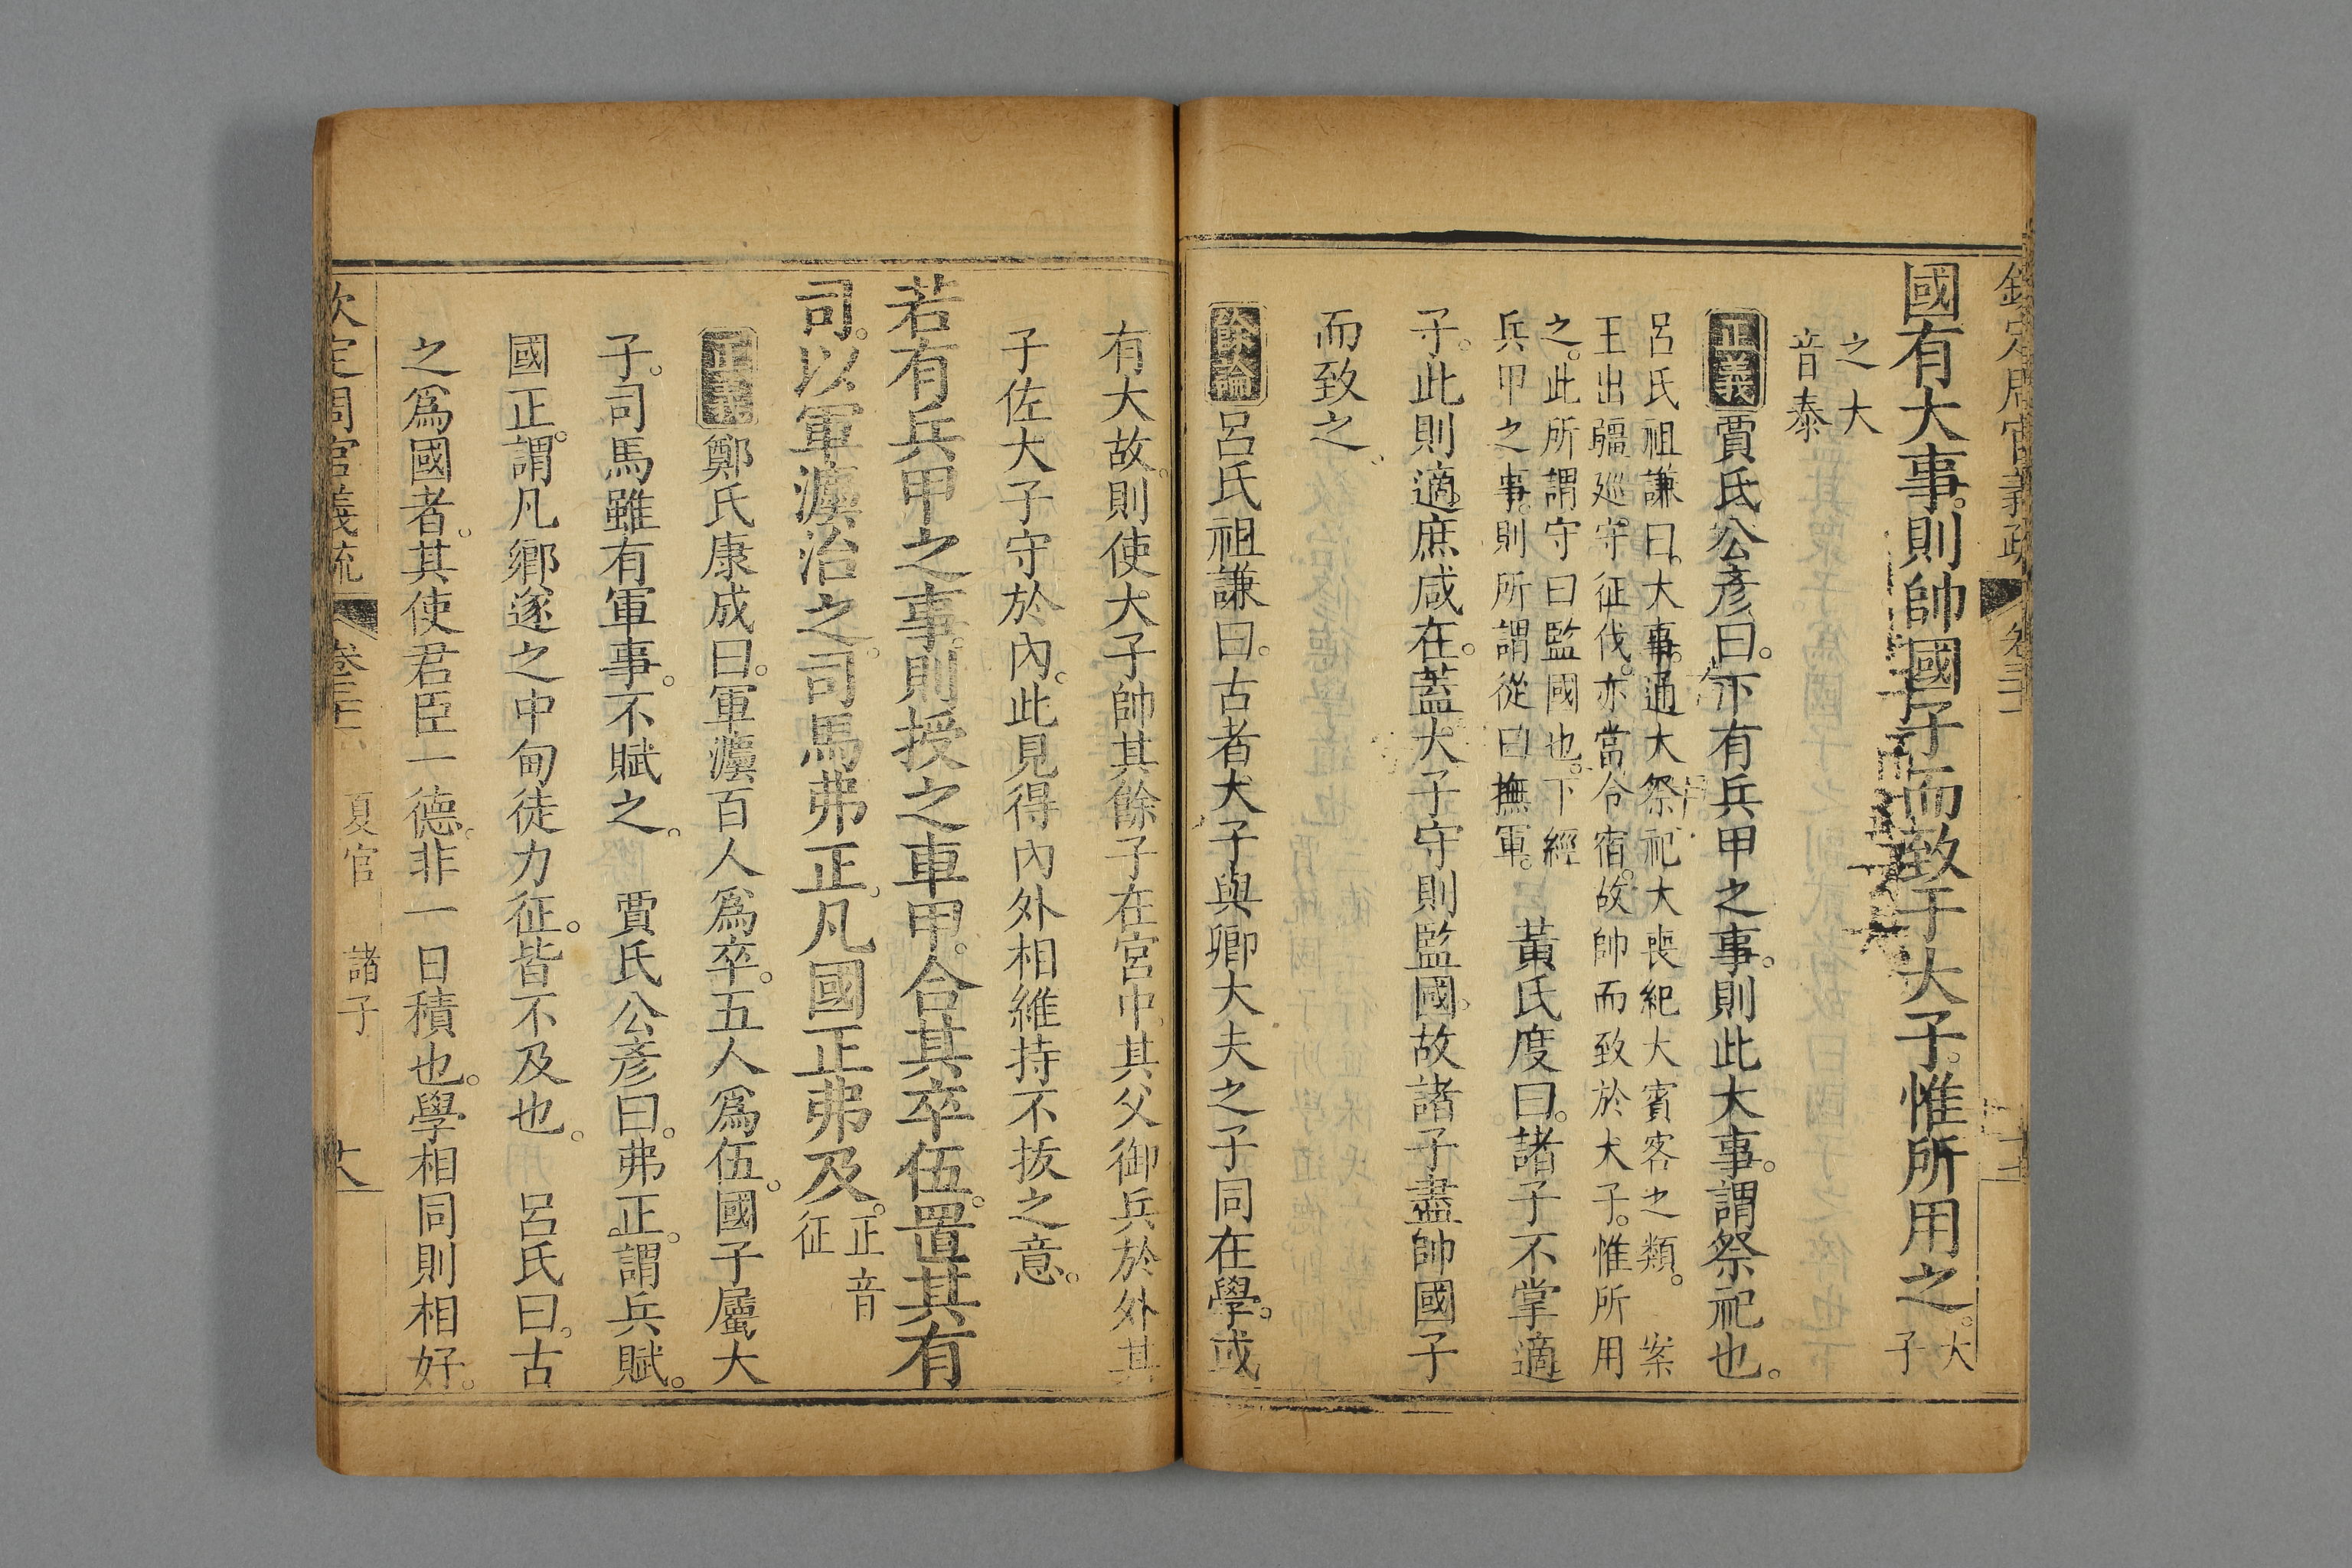 欽定周官義疏 卷三十一
國有大事。則帥國子而致于大子。惟所用之。大子
之大音泰
正義 賈氏公彥曰。下有兵甲之事。則此大事。謂祭祀也。
呂氏祖謙曰。大事。通大祭祀大喪紀大賓客之類。 案
王出疆廵守征伐。亦當令宿。故帥而致於大子。惟所用
之。此所謂守曰監國也。下經
兵甲之事。則所謂從曰撫軍。
黃氏度曰。諸子不掌適
子。此則適庶咸在。蓋大子守則監國。故諸子盡帥國子
而致之。
餘論 呂氏祖謙曰。古者大子與卿大夫之子同在學。或
有大故。則使大子帥其餘子在宮中。其父御兵於外。其
子佐大子守於內。此見得內外相維持不拔之意。
若有兵甲之事。則授之車甲。合其卒伍。置其有
司。以軍灋治之。司馬弗正。凡國正弗及。正音征
正義 鄭氏康成曰。軍灋百人爲卒。五人爲伍。國子屬大
子。司馬雖有軍事。不賦之。 賈氏公彥曰。弗正。謂兵賦。
國正。謂凡鄉遂之中甸徒力征。皆不及也。 呂氏曰。古
之爲國者。其使君臣一德。非一日積也。學相同則相好。
欽定周官義疏 卷三十一 夏官 諸子